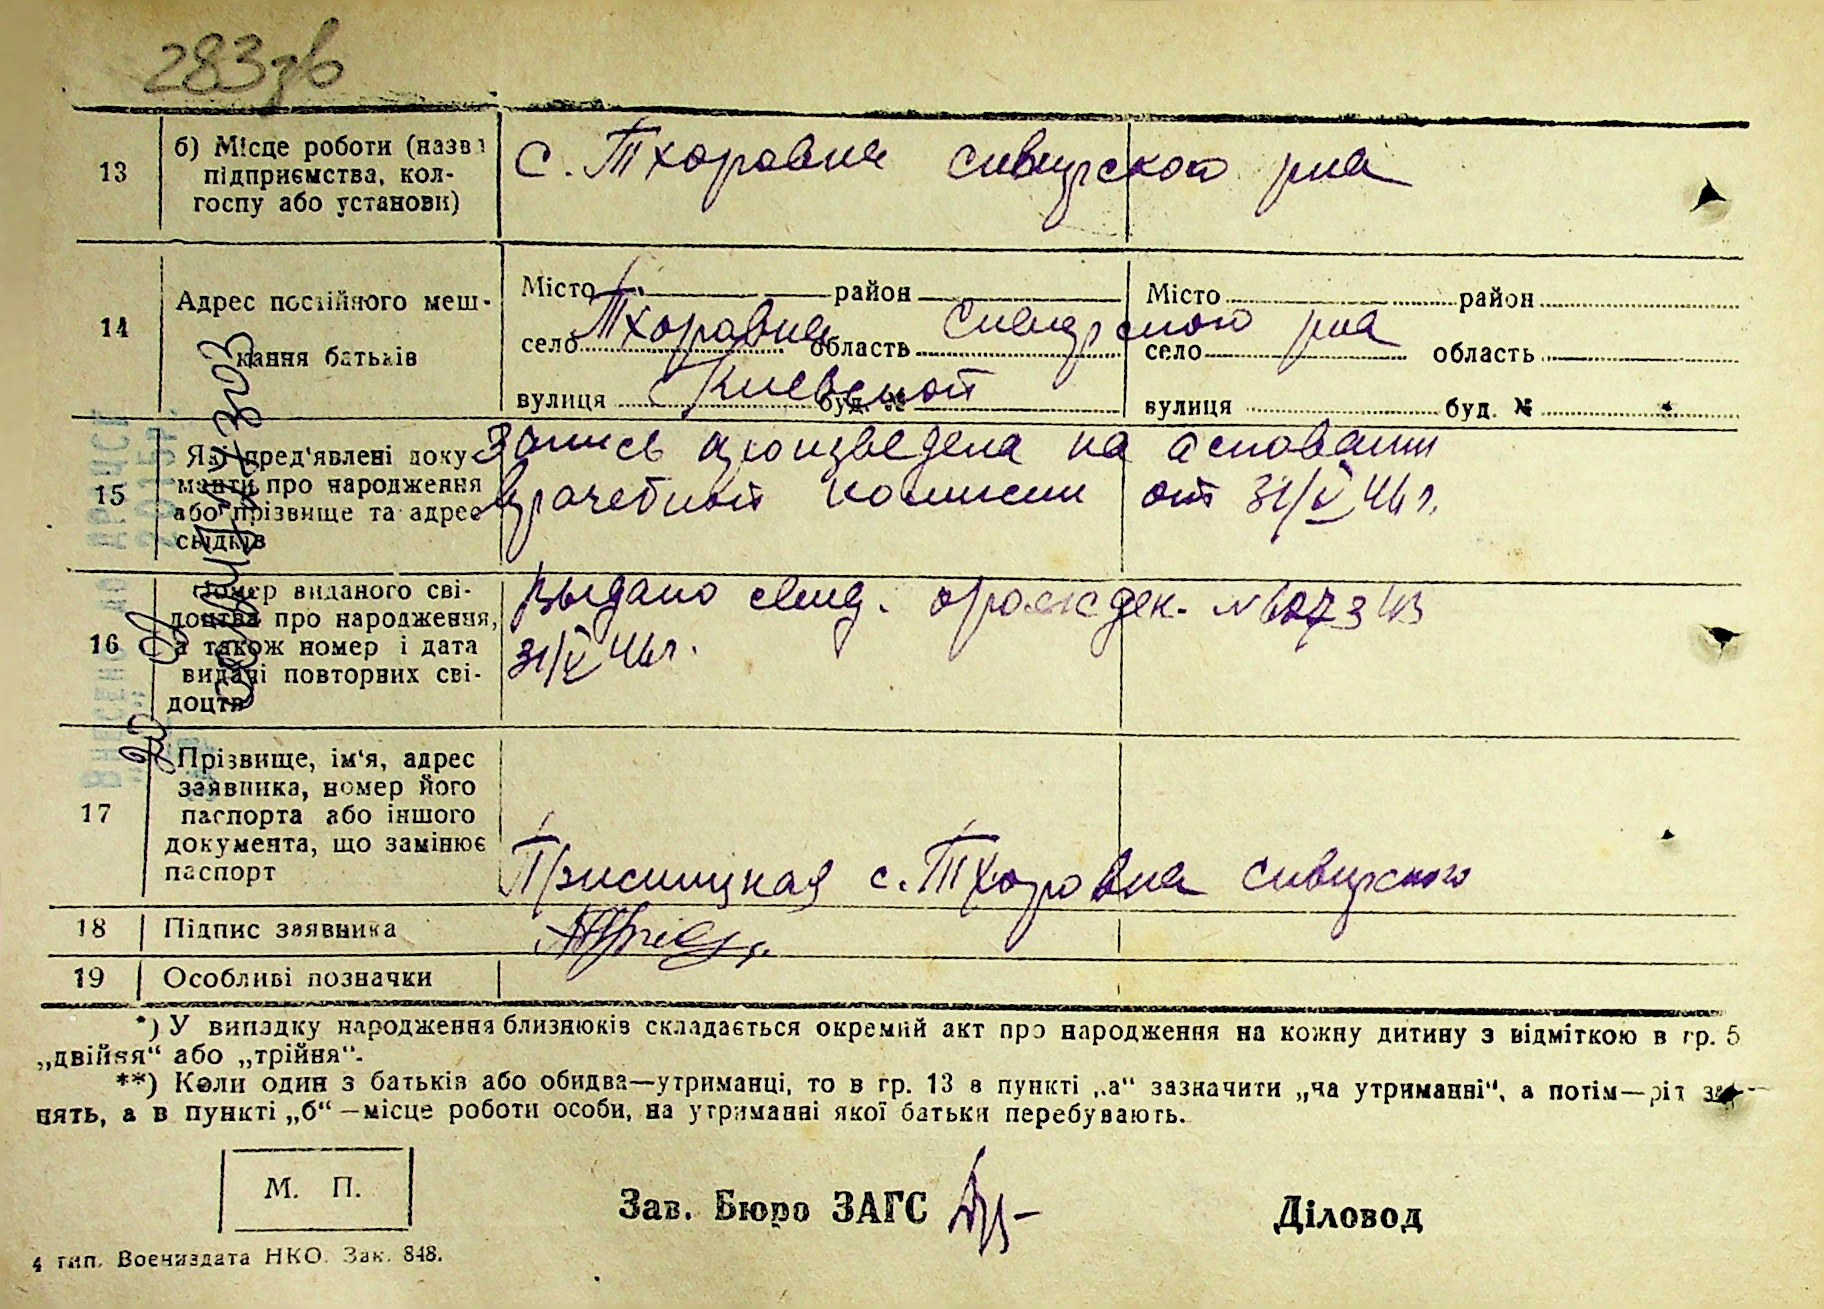 283зв
13
б) Місце роботи (назва
підприємства, кол-
госпу або установи)
с. Тхоровка сквирского р-на
14
Адрес постійного меш-
кання батьків
Місто район
Місто район
Тхоровка Сквирского р-на
село область
село область
Киевской
вулиця буд. №
вулиця буд. №
15
Які пред'явлені доку-
менти про народження
або прізвище та адрес
свідків
Запись произведена на основании
врачебной комисии от 31/V 46 г.
16
Номер виданого сві-
доцтва про народження,
а також номер і дата
видачі повторних сві-
доцтв
Выдано свид. о рожден. №
31/V 46 г.
17
Прізвище, ім'я, адрес
заявника, номер його
паспорта або іншого
документа, що замінює
паспорт
с. Тхоровка сквирского
18
Підпис заявника
19
Особливі позначки
*) У випадку народження близнюків складається окремий акт про народження на кожну дитину з відміткою в гр. 5
„двійня“ або „трійня“.
**) Коли один з батьків або обидва—утриманці, то в гр. 13 в пункті „а“ зазначити „на утриманні“, а потім—рід за-
нять, а в пункті „б“—місце роботи особи, на утриманні якої батьки перебувають.
М. П.
Зав. Бюро ЗАГС
Діловод
4 тип. Воениздата НКО. Зак. 848.